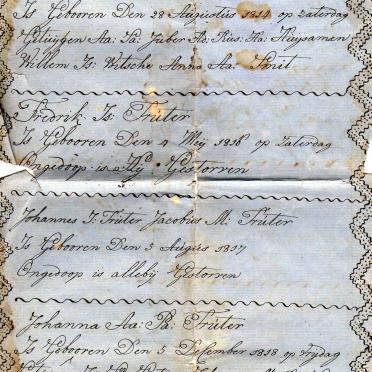 Is Gebooren Den 28 Augustus 1814 op zaterdag
Getuijgen Aa: Pa: Juber As: Kus: Ha: Huijsamen
Willem Is: Witsche Anna Aa: Smit
Fredrik Is: Trüter
Is Gebooren Den 4 Meij 1816 op zaterdag
Ongedoop is Hij Gestorren
Johannes I: Trüter Jacobus M: Trüter
Is Gebooren Den 5 Augus 1817
Ongedoop is allebij Gestorren
Johanna Aa: Pa: Trüter
Is Gebooren Den 5 Desember 1818 op vrijdag